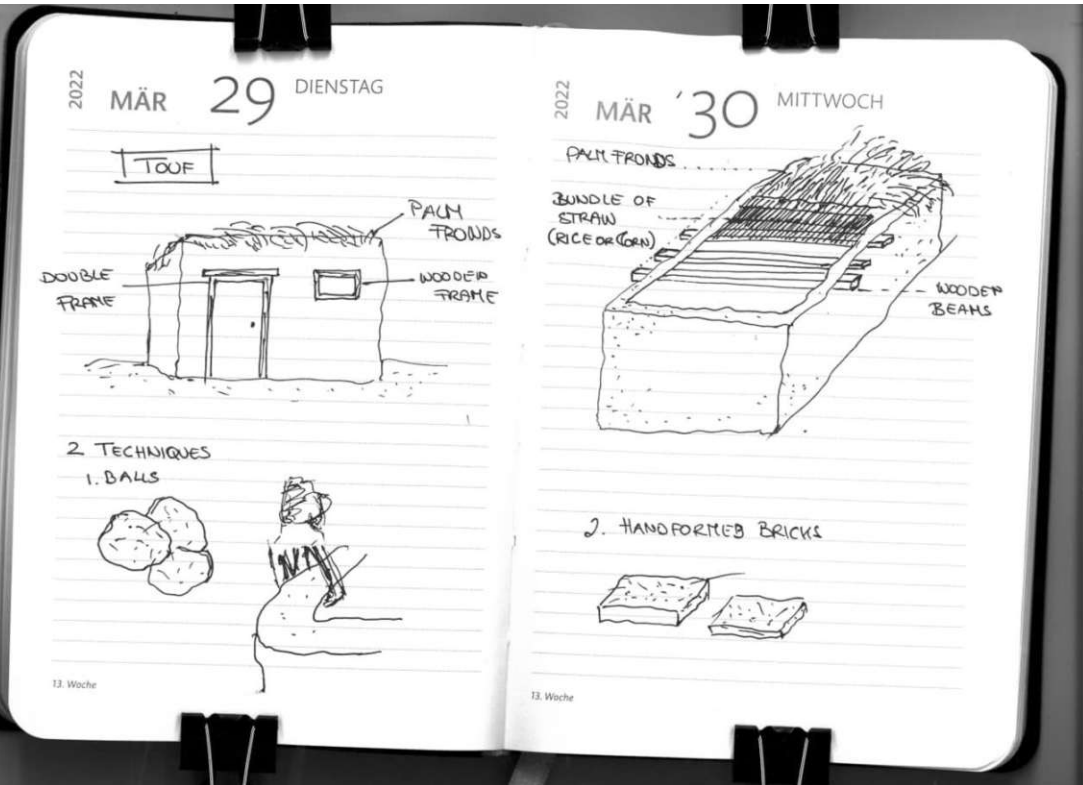 2022
MÄR 29 DIENSTAG
TOUF
PALM
FRONDS
DOUBLE
FRAME
WOODEN
FRAME
2 TECHNIQUES
1. BALLS
13. Woche
2022
MÄR 30 MITTWOCH
PALM FRONDS
BUNDLE OF
STRAW
(RICE OR CORN)
WOODEN
BEAMS
2. HANDFORMED BRICKS
13. Woche